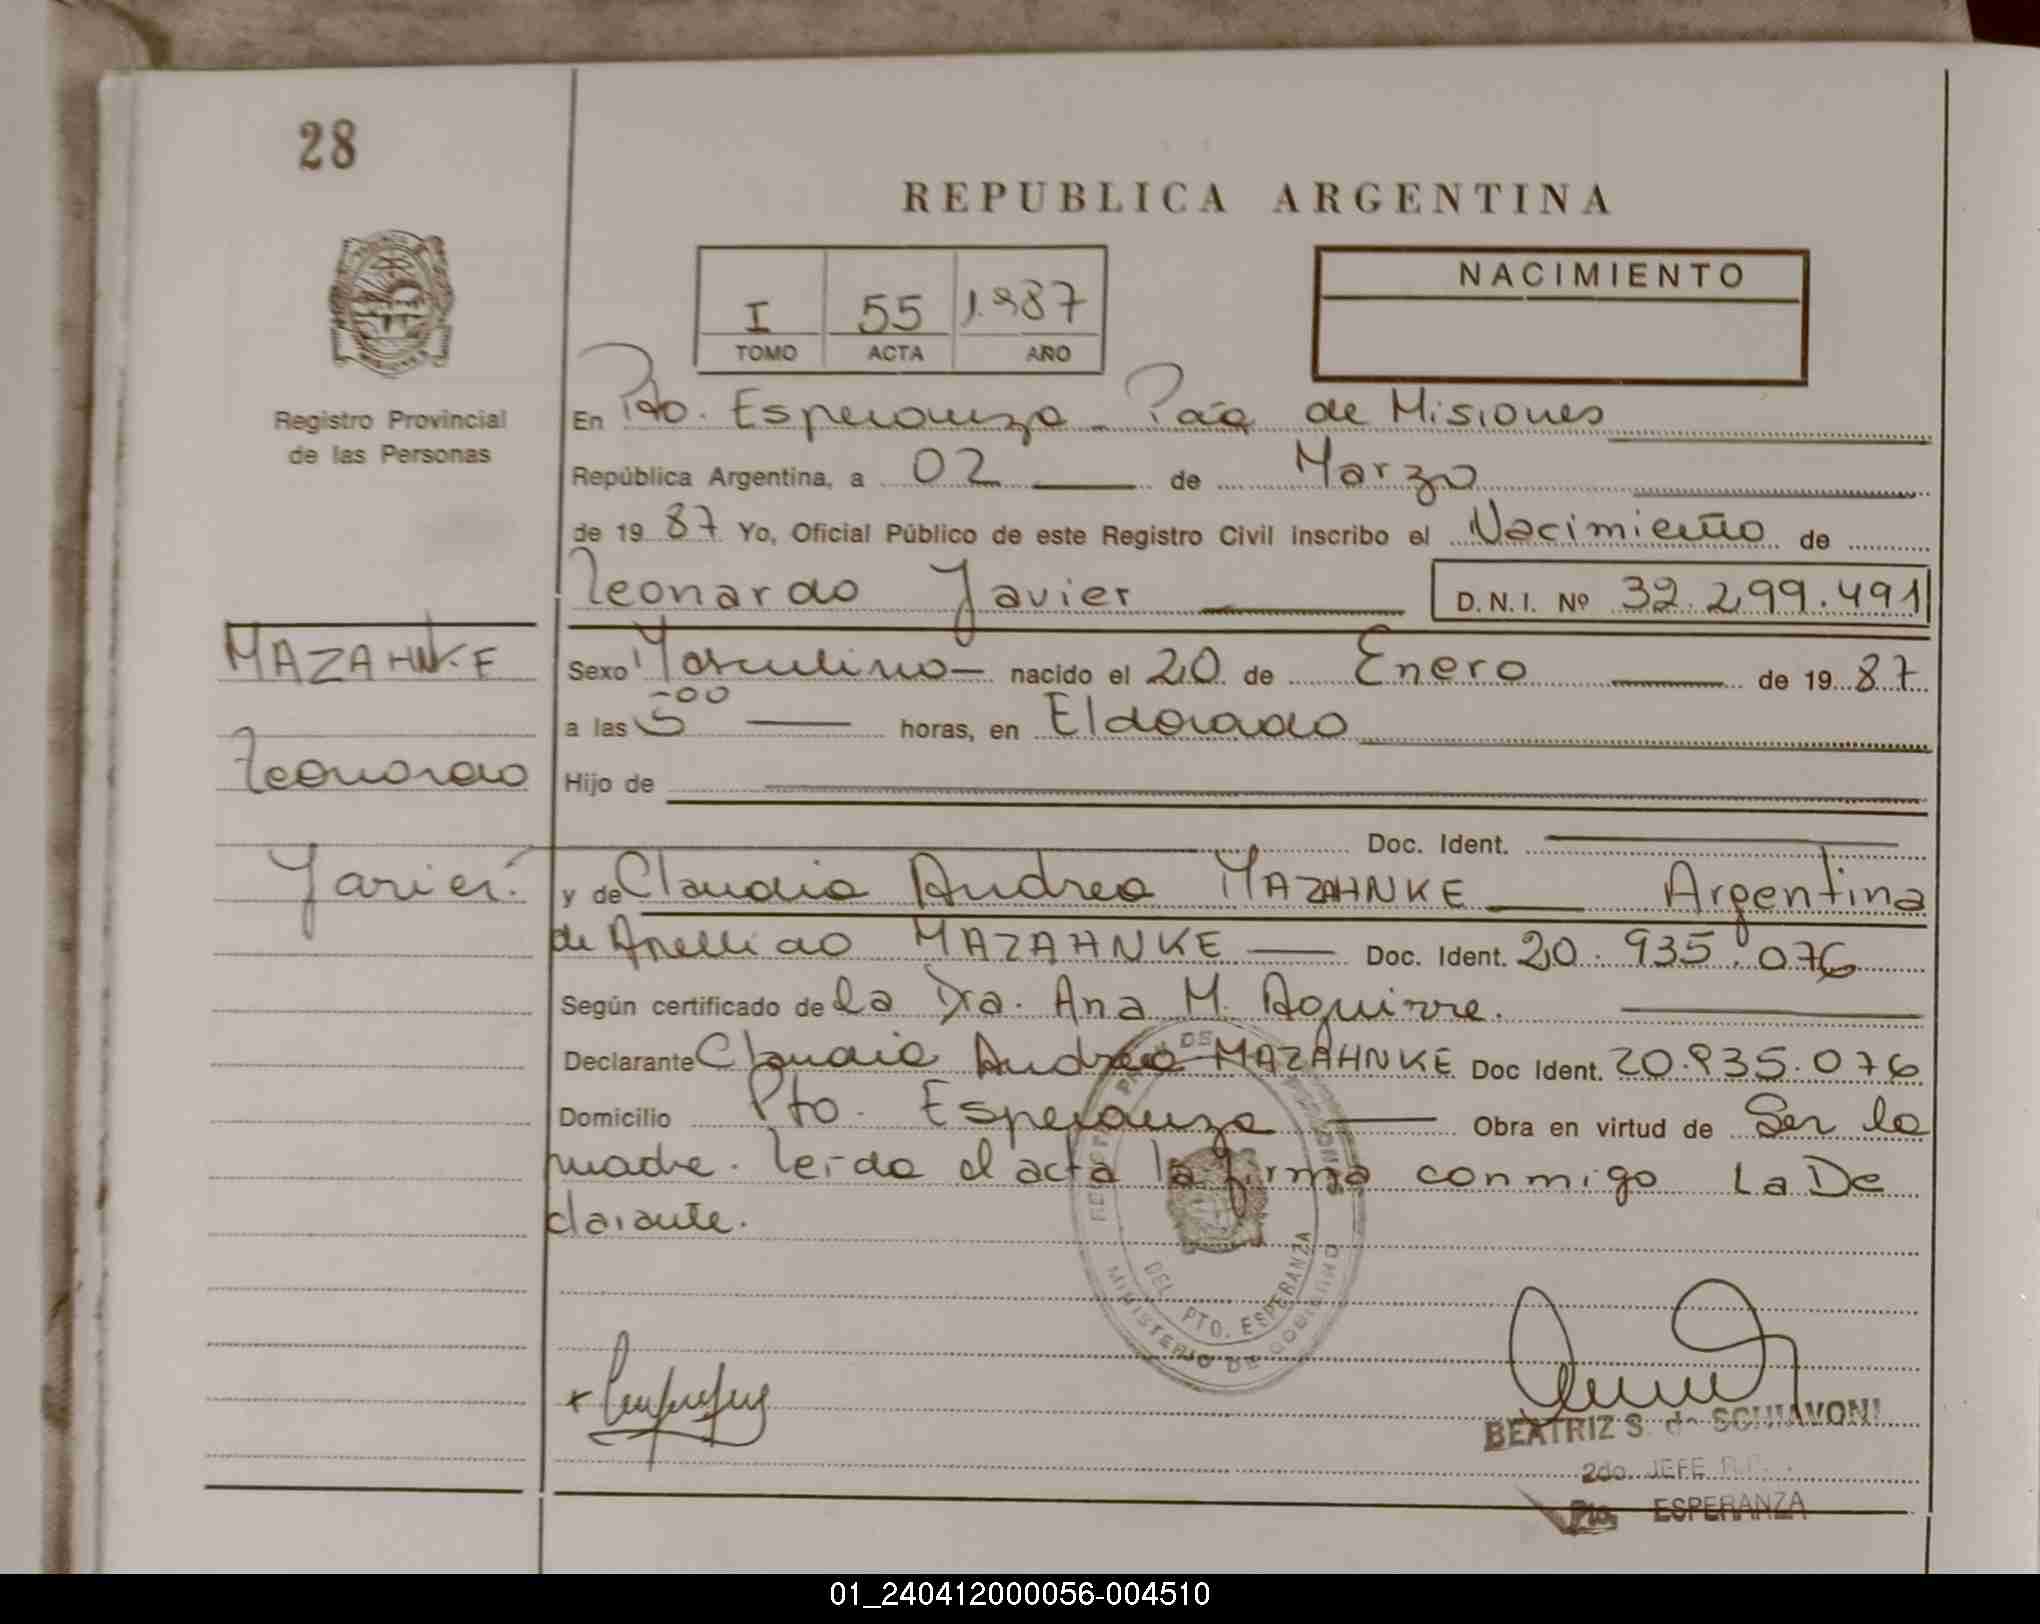 28
REPUBLICA ARGENTINA
NACIMIENTO
I 55 1.987
TOMO ACTA AÑO
Registro Provincial
de las Personas
En Pto. Esperanza - Pcia de Misiones
República Argentina, a 02 de Marzo
de 19 87 Yo, Oficial Público de este Registro Civil inscribo el Nacimiento de
Leonardo Javier D.N.I. Nº 32.299.491
MAZAHNKE
Leonardo
Javier.
Sexo Masculino nacido el 20 de Enero de 19 87
a las 5-00 horas, en Eldorado
Hijo de
Doc. Ident.
y de Claudia Andrea MAZAHNKE Argentina
de MAZAHNKE Doc. Ident. 20.935.076
Según certificado de la Dra. Ana M. Aguirre.
Declarante Claudia Andrea MAZAHNKE Doc Ident. 20.935.076
Domicilio Pto. Esperanza Obra en virtud de Ser la
madre. leída el acta la firma conmigo La De
clarante.
DEL PTO. ESPERANZA
MINISTERIO DE GOBIERNO
BEATRIZ S. de SCHIAVONI
2do. JEFE
Pto. ESPERANZA
01_240412000056-004510